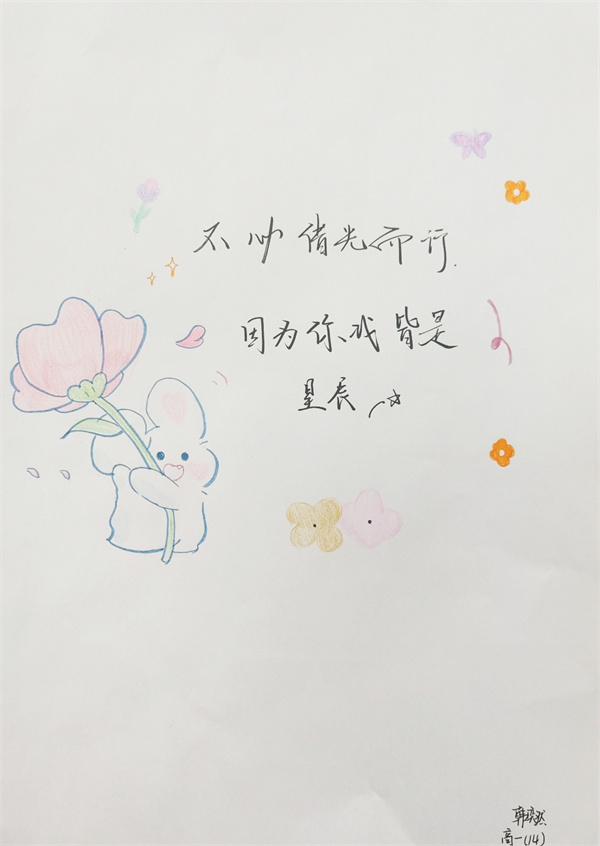 不必借光而行
因为你我皆是
星辰
韩奕然
高一(14)